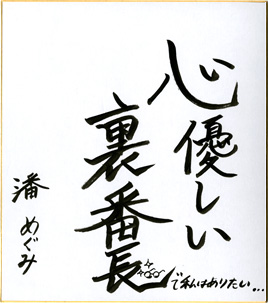 心優しい
裏番長
で私はありたい…
潘めぐみ